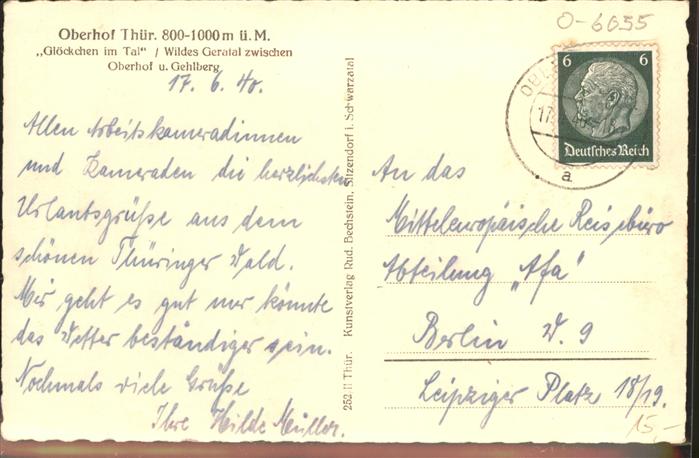 Oberhof Thür. 800-1000 m ü. M.
„Glöckchen im Tal“ / Wildes Geratal zwischen
Oberhof u. Gehlberg
17. 6. 40.
Allen Arbeitskameradinnen
und Kameraden die herzlichsten
Urlaubsgrüße aus dem
schönen Thüringer Wald.
Mir geht es gut nur könnte
das Wetter beständiger sein.
Nochmals viele Grüße
Ihre Hilde Müller.
252 II Thür. Kunstverlag Rud. Bechstein, Sitzendorf i. Schwarzatal
O-6055
6 6
Deutsches Reich
17.
a
An das
Mitteleuropäische Reisebüro
Abteilung „Afa“
Berlin W. 9
Leipziger Platz 18/19.
15,-